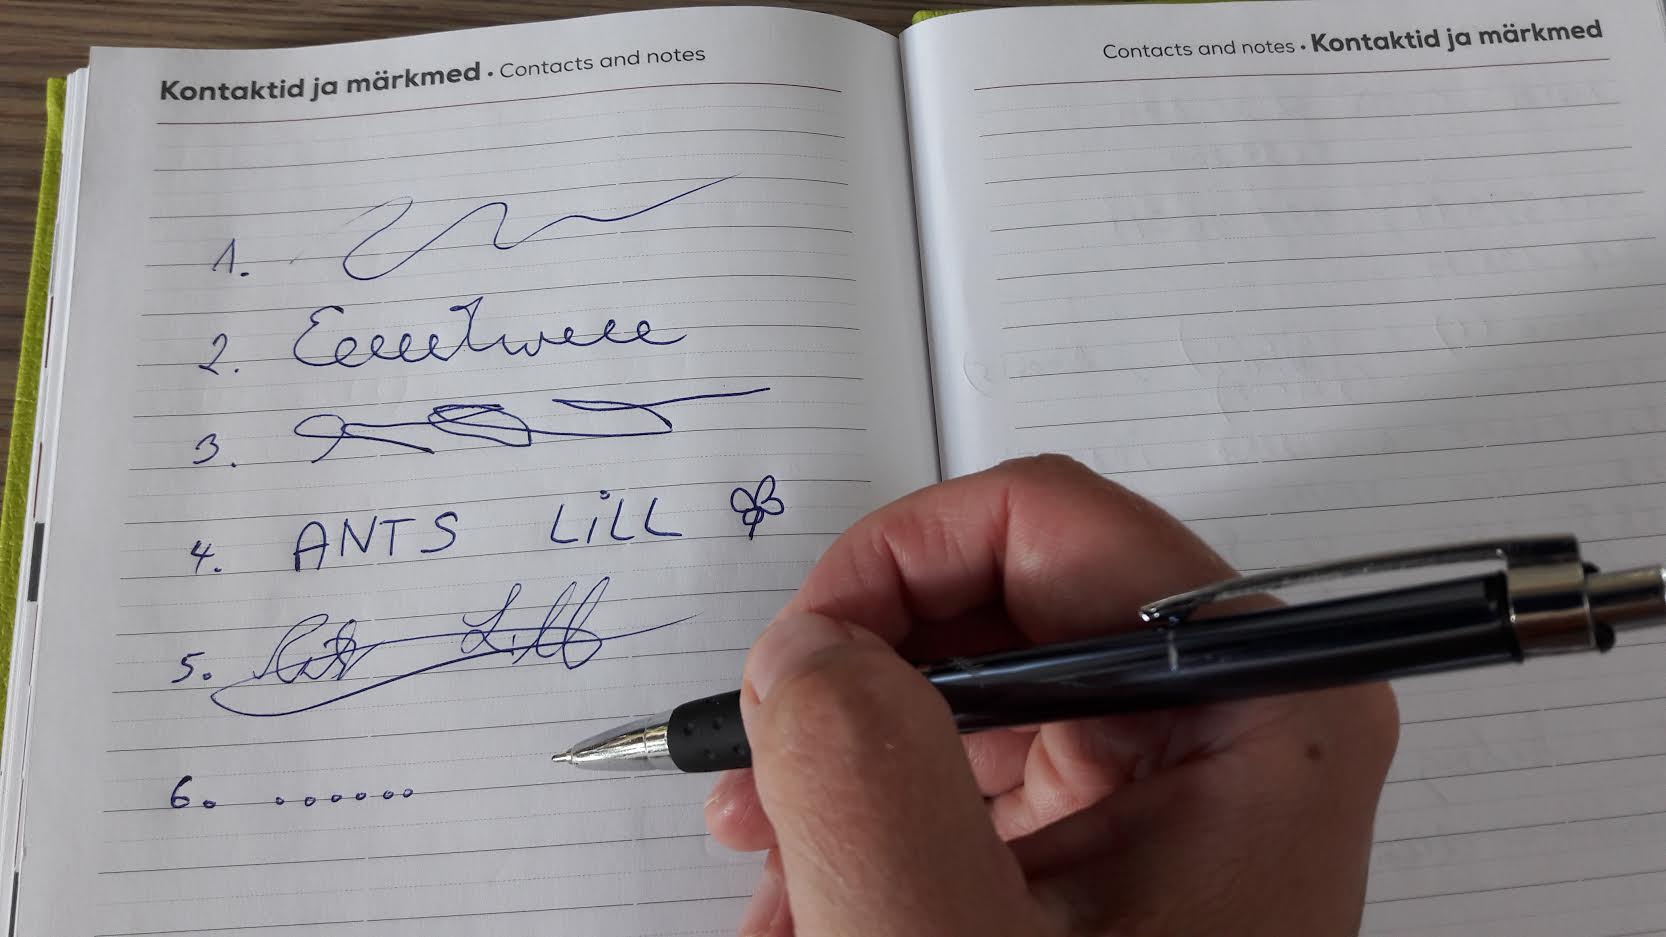 Kontaktid ja märkmed • Contacts and notes
Contacts and notes • Kontaktid ja märkmed
1.
2.
3.
4. ANTS LiLL
5. Lill
6. ......